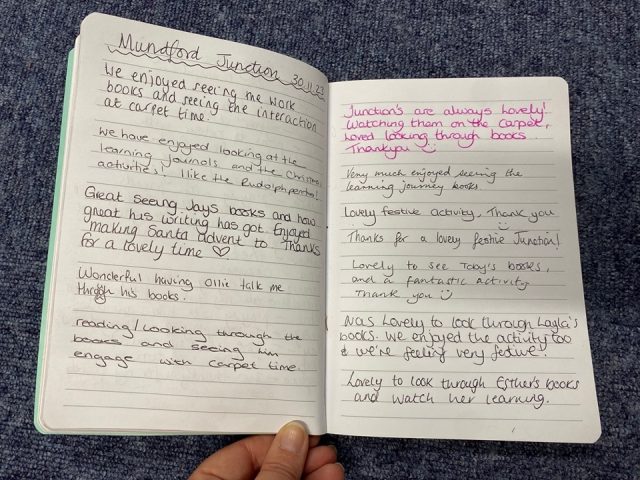 Mundford Junction 30.11.23
We enjoyed seeing me work
books and seeing the interaction
at carpet time.
We have enjoyed looking at the
learning journals and the Christmas
activities! I like the Rudolph pencho!
Great seeing Jays books and how
great his writing has got. Enjoyed
making Santa advent to Thanks
for a lovely time ♡
Wonderful having Ollie talk me
through his books.
reading/looking through the
books and seeing him
engage with carpet time.
Junction's are always Lovely!
Watching them on the carpet,
Loved looking through books.
Thankyou
Very much enjoyed seeing the
learning journey books.
Lovely festive activity. Thank you
Thanks for a lovely festive Junction!
Lovely to see Toby's books,
and a fantastic activity.
Thank you
Was Lovely to look through Layla's
books. We enjoyed the activity too
& we're feeling very festive!
Lovely to look through Esther's books
and watch her learning.